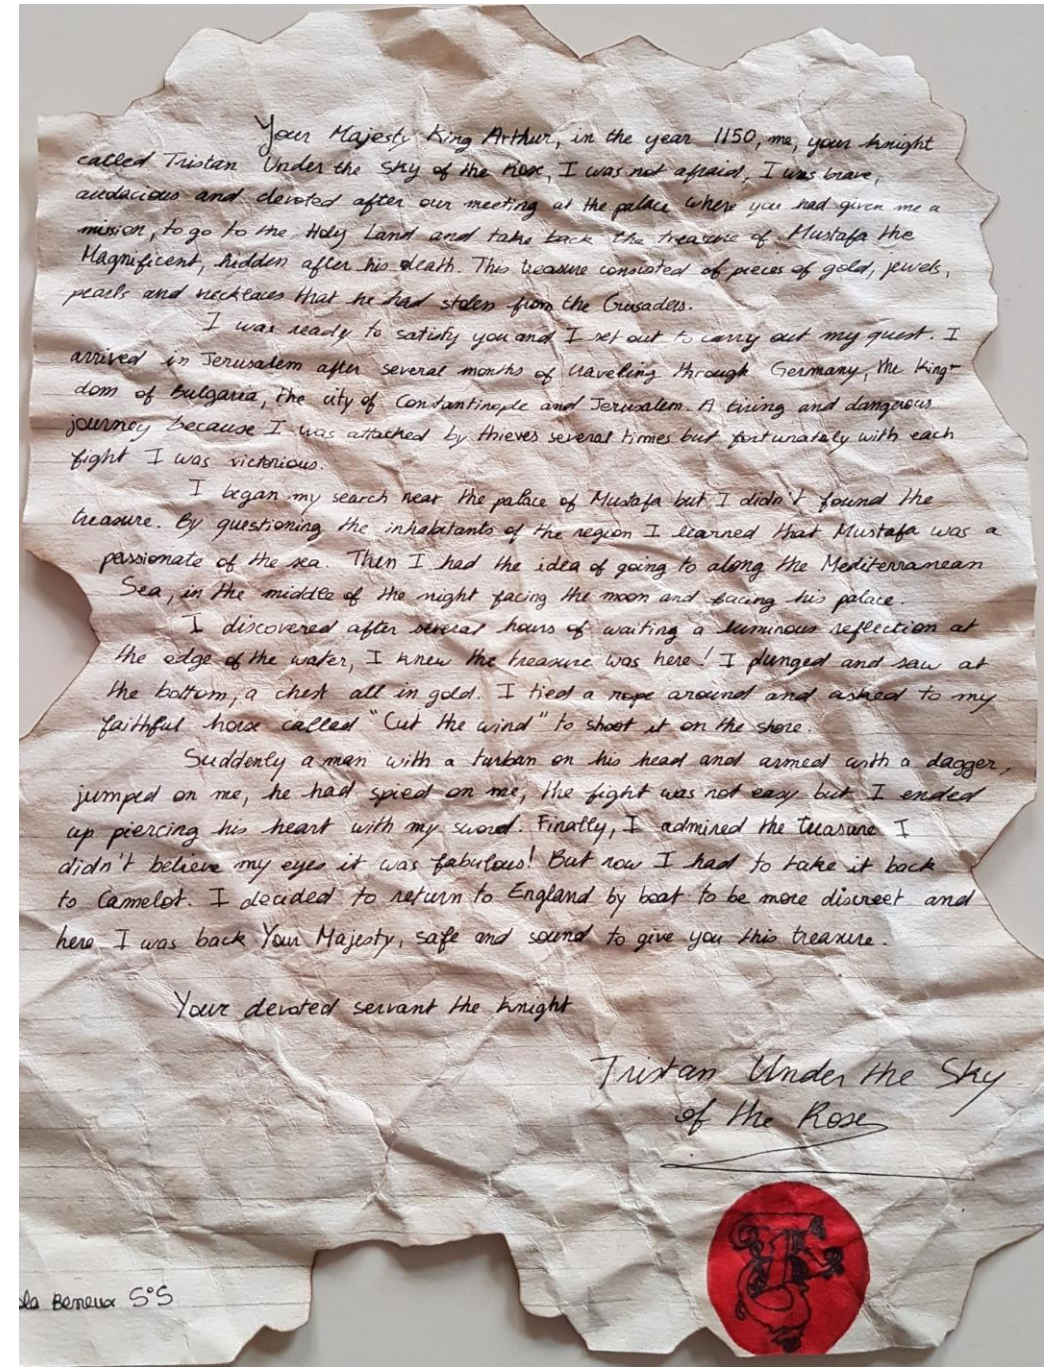 Your Majesty King Arthur, in the year 1150, me, your knight
called Tristan Under the Sky of the Rose, I was not afraid, I was brave,
audacious and devoted after our meeting at the palace where you had given me a
mission, to go to the Holy Land and take back the treasure of Mustafa the
Magnificent, hidden after his death. This treasure consisted of pieces of gold, jewels,
pearls and necklaces that he had stolen from the Crusaders.
I was ready to satisfy you and I set out to carry out my quest. I
arrived in Jerusalem after several months of traveling through Germany, the King-
dom of Bulgaria, the city of Constantinople and Jerusalem. A tiring and dangerous
journey because I was attacked by thieves several times but fortunately with each
fight I was victorious.
I began my search near the palace of Mustafa but I didn't found the
treasure. By questioning the inhabitants of the region I learned that Mustafa was a
passionate of the sea. Then I had the idea of going to along the Mediterranean
Sea, in the middle of the night facing the moon and facing his palace.
I discovered after several hours of waiting a luminous reflection at
the edge of the water, I knew the treasure was here! I plunged and saw at
the bottom, a chest all in gold. I tied a rope around and asked to my
faithful horse called "Cut the wind" to shoot it on the shore.
Suddenly a man with a turban on his head and armed with a dagger,
jumped on me, he had spied on me, the fight was not easy but I ended
up piercing his heart with my sword. Finally, I admired the treasure I
didn't believe my eyes it was fabulous! But now I had to take it back
to Camelot. I decided to return to England by boat to be more discreet and
here I was back Your Majesty, safe and sound to give you this treasure.
Your devoted servant the knight
Tristan Under the Sky
of the Rose
Beneux 5°5